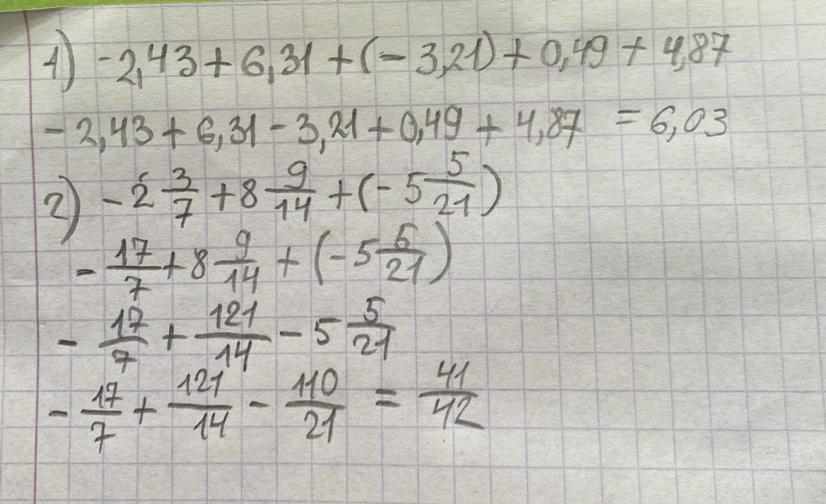 1) -2,43 + 6,31 + (- 3,21) + 0,49 + 4,87
- 2,43 + 6,31 - 3,21 + 0,49 + 4,87 = 6,03
2) - 2 3/7 + 8 9/14 + (- 5 5/21)
- 17/7 + 8 9/14 + (- 5 5/21)
- 17/7 + 121/14 - 5 5/21
- 17/7 + 121/14 - 110/21 = 41/42